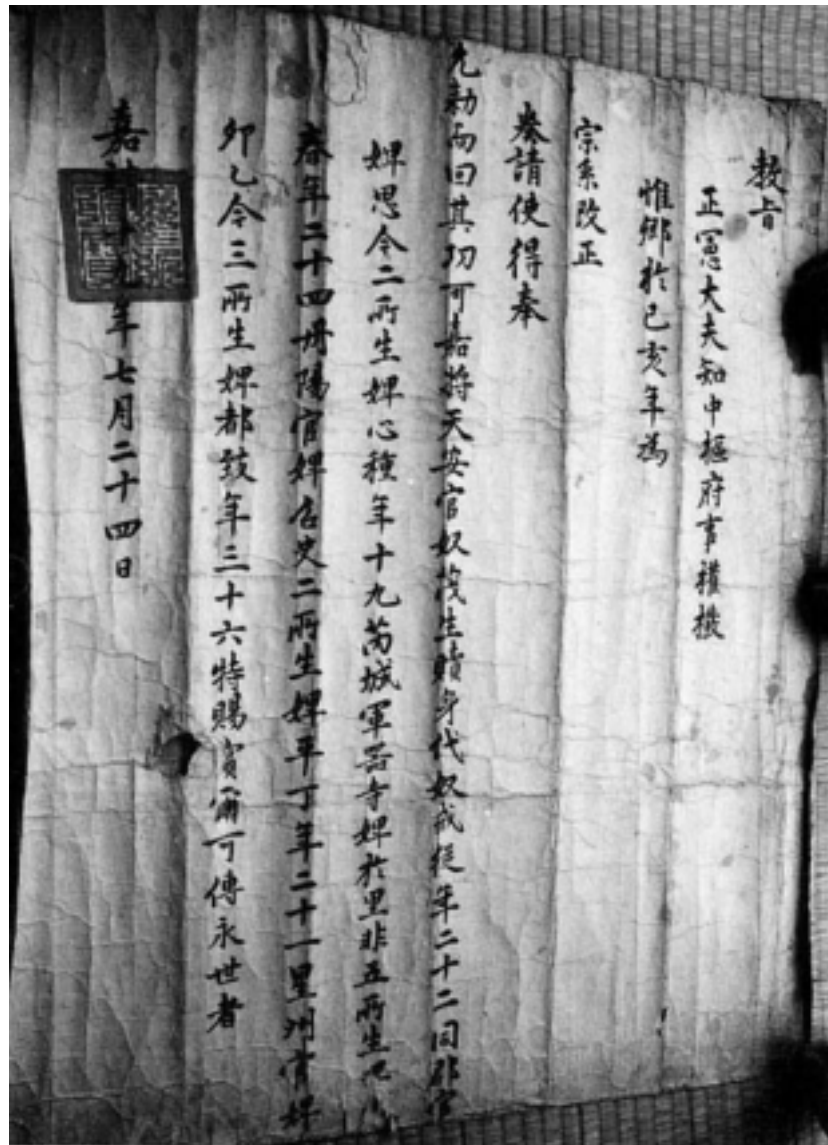 教旨
正憲大夫知中樞府事權橃
惟卿於己亥年為
宗系改正
奏請使得奉
允勅而回其功可嘉將天安官奴茂生贖身代奴戒從年二十二同郡官
婢思今二所生婢心種年十九芮城軍器寺婢於里非五所生婢
春年二十四丹陽官婢召史二所生婢平丁年二十一星州官婢
卯乙今三所生婢都致年三十六特賜賞爾可傳永世者
嘉靖十九年七月二十四日